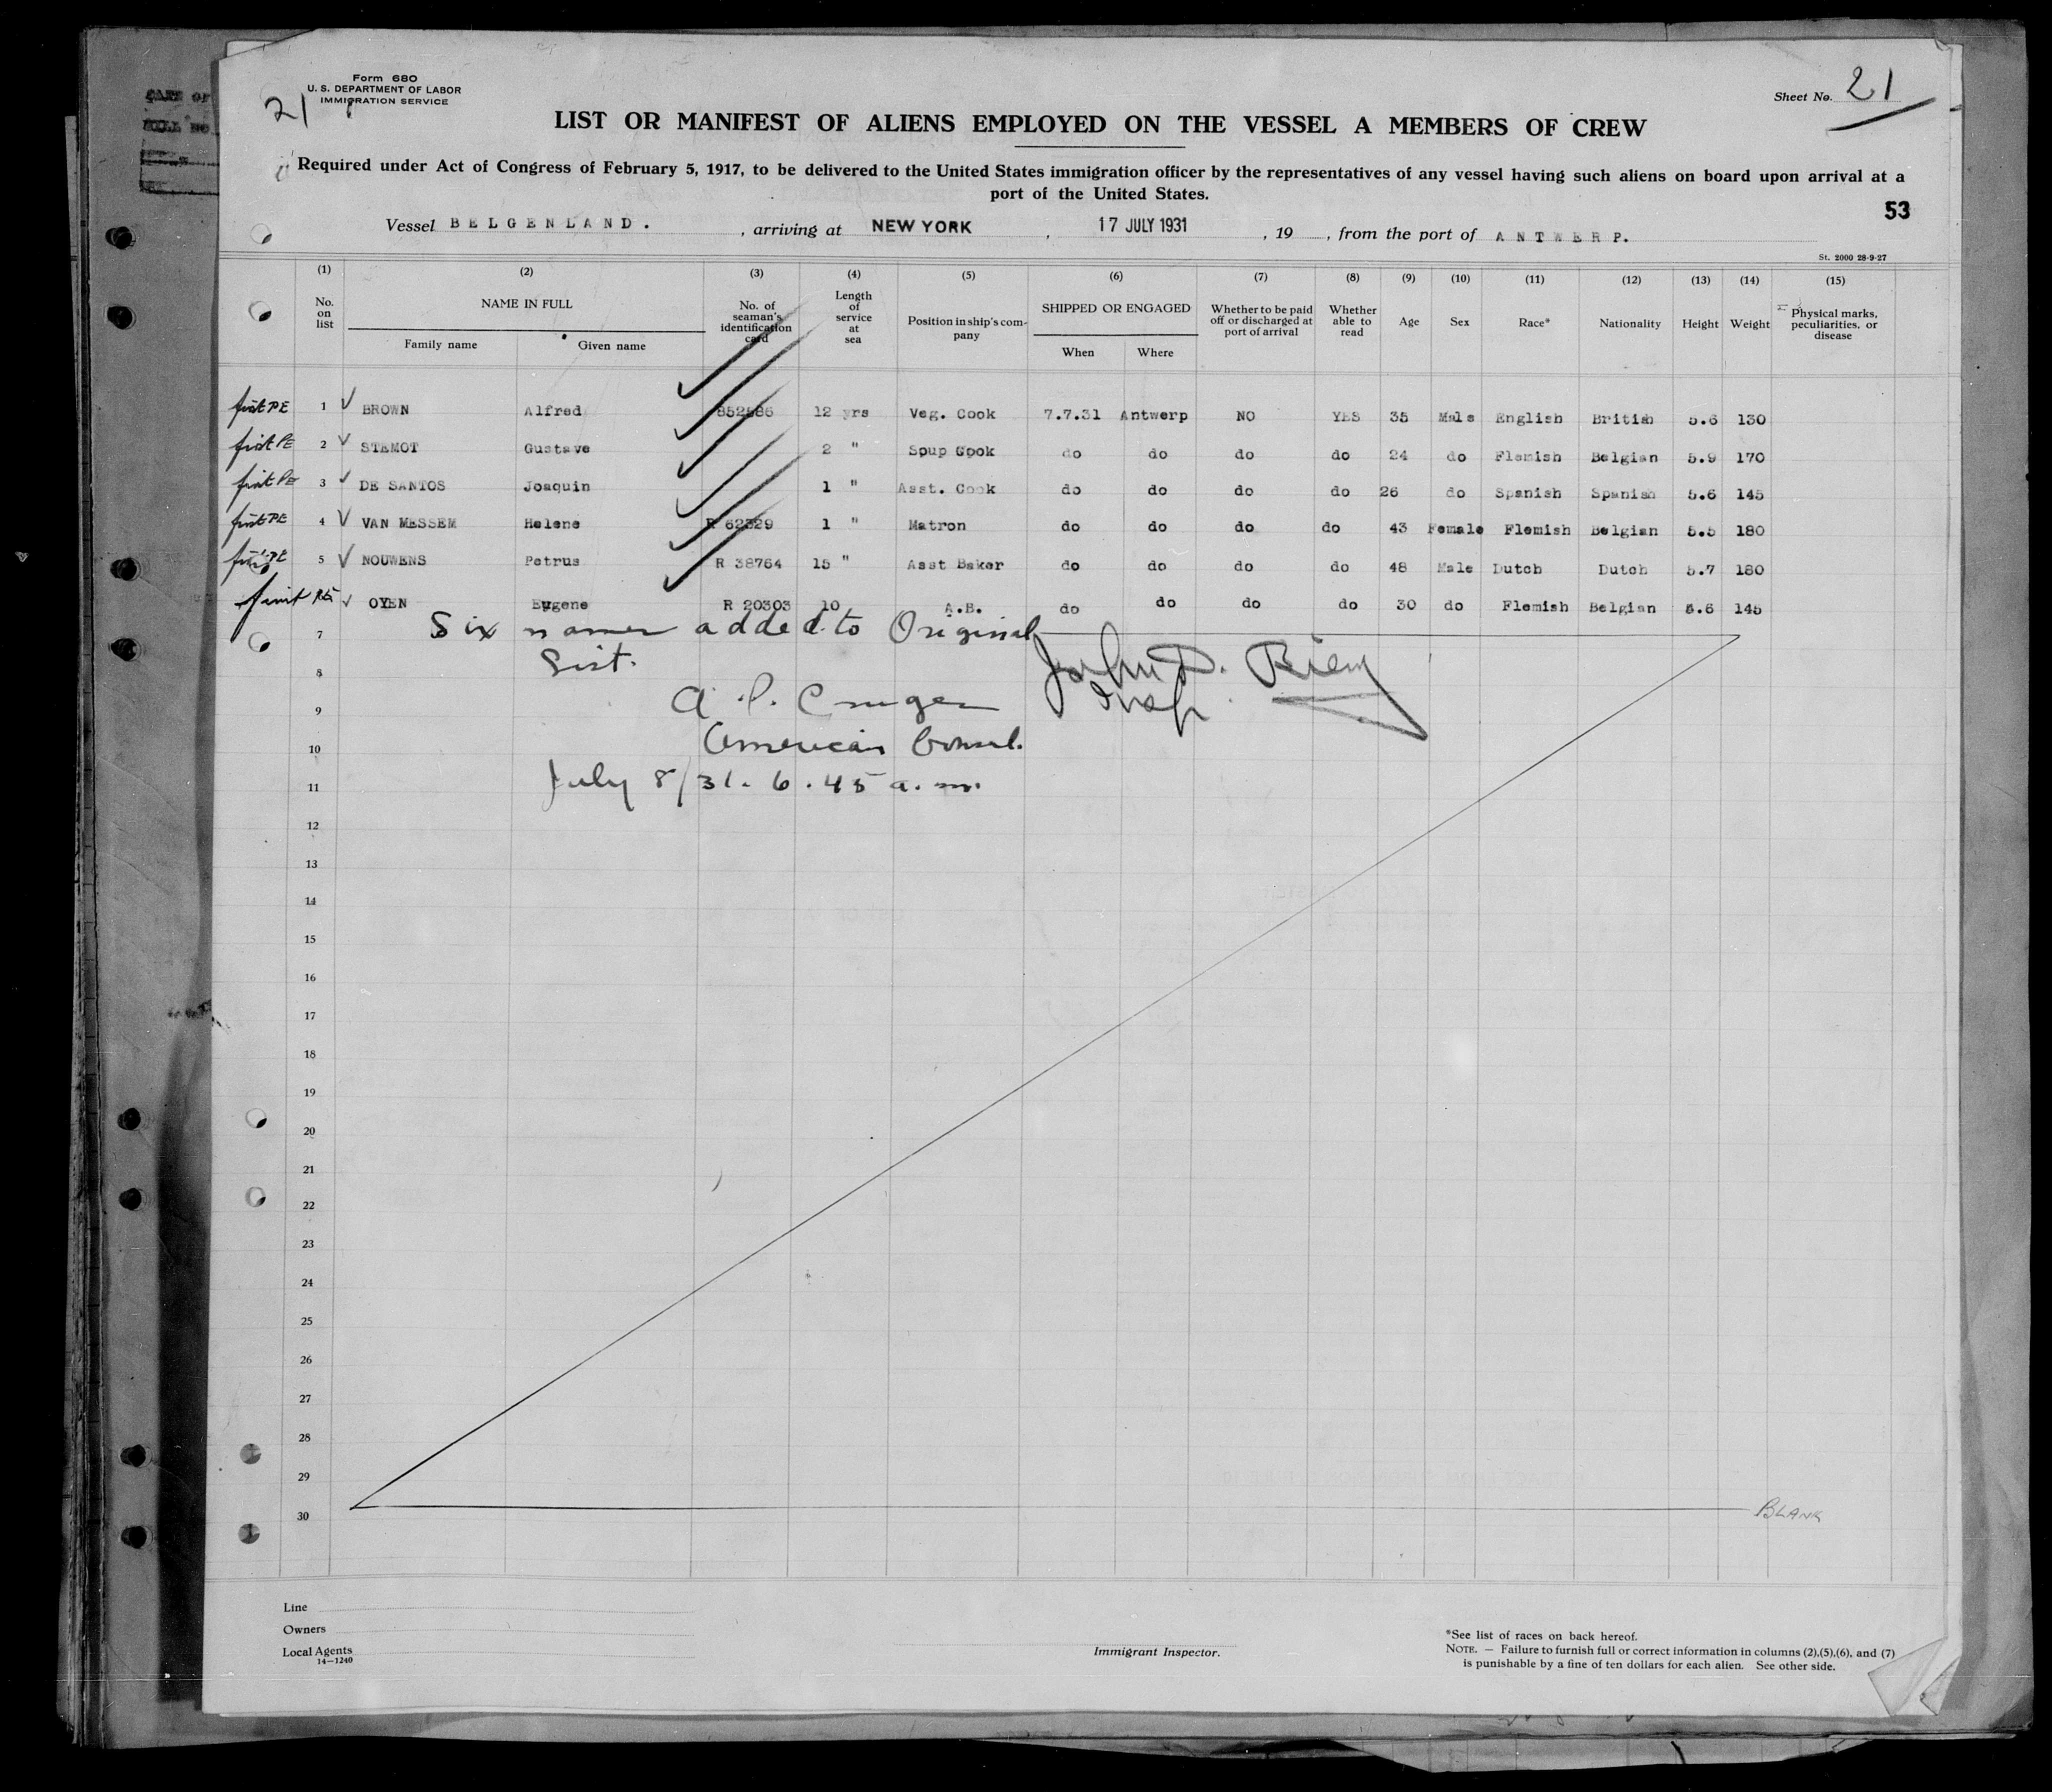 Form 680
U. S. DEPARTMENT OF LABOR
IMMIGRATION SERVICE
21
Sheet No. 21
LIST OR MANIFEST OF ALIENS EMPLOYED ON THE VESSEL A MEMBERS OF CREW
Required under Act of Congress of February 5, 1917, to be delivered to the United States immigration officer by the representatives of any vessel having such aliens on board upon arrival at a
port of the United States.
53
Vessel BELGENLAND. , arriving at NEW YORK , 17 JULY 1931 , 19 , from the port of ANTWERP.
St. 2000 28-9-27
(1) (2) (3) (4) (5) (6) (7) (8) (9) (10) (11) (12) (13) (14) (15)
No. on list NAME IN FULL Family name Given name No. of seaman's identification card Length of service at sea Position in ship's company SHIPPED OR ENGAGED When Where Whether to be paid off or discharged at port of arrival Whether able to read Age Sex Race* Nationality Height Weight Physical marks, peculiarities, or disease
first PE 1 BROWN Alfred 12 yrs Veg. Cook 7.7.31 Antwerp NO YES 35 Male English British 5.6 130
first PE 2 STEMOT Gustave 2 " Soup Cook do do do do 24 do Flemish Belgian 5.9 170
first PE 3 DE SANTOS Joaquin 1 " Asst. Cook do do do do 26 do Spanish Spanish 5.6 145
first PE 4 VAN MESSEM Helene R 62329 1 " Matron do do do do 43 Female Flemish Belgian 5.5 180
first PE 5 NOUWENS Petrus R 38764 15 " Asst Baker do do do do 48 Male Dutch Dutch 5.7 180
OYEN Eugene R 20303 10 A.B. do do do do 30 do Flemish Belgian 5.6 145
7 Six names added to Original
8 List. John D.
9 A. P. Cruger Insp.
10 American Consul.
11 July 8/31. 6.45 a.m.
12
13
14
15
16
17
18
19
20
21
22
23
24
25
26
27
28
29
30 BLANK
Line
Owners
Local Agents
14—1240
Immigrant Inspector.
*See list of races on back hereof.
NOTE. — Failure to furnish full or correct information in columns (2),(5),(6), and (7)
is punishable by a fine of ten dollars for each alien. See other side.